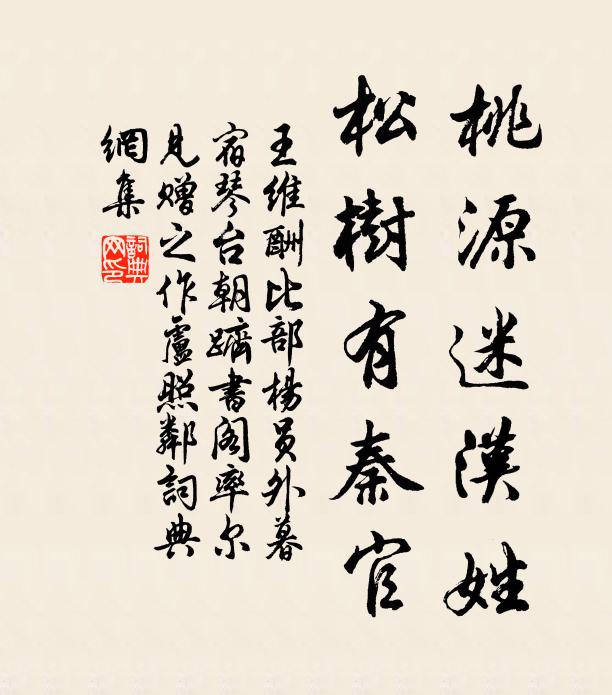 桃源迷漢姓
松樹有秦官
王維酬比部楊員外暮
宿琴台朝躋書閣率尔
見赠之作盧照鄰詞典
網集
詞典
网印